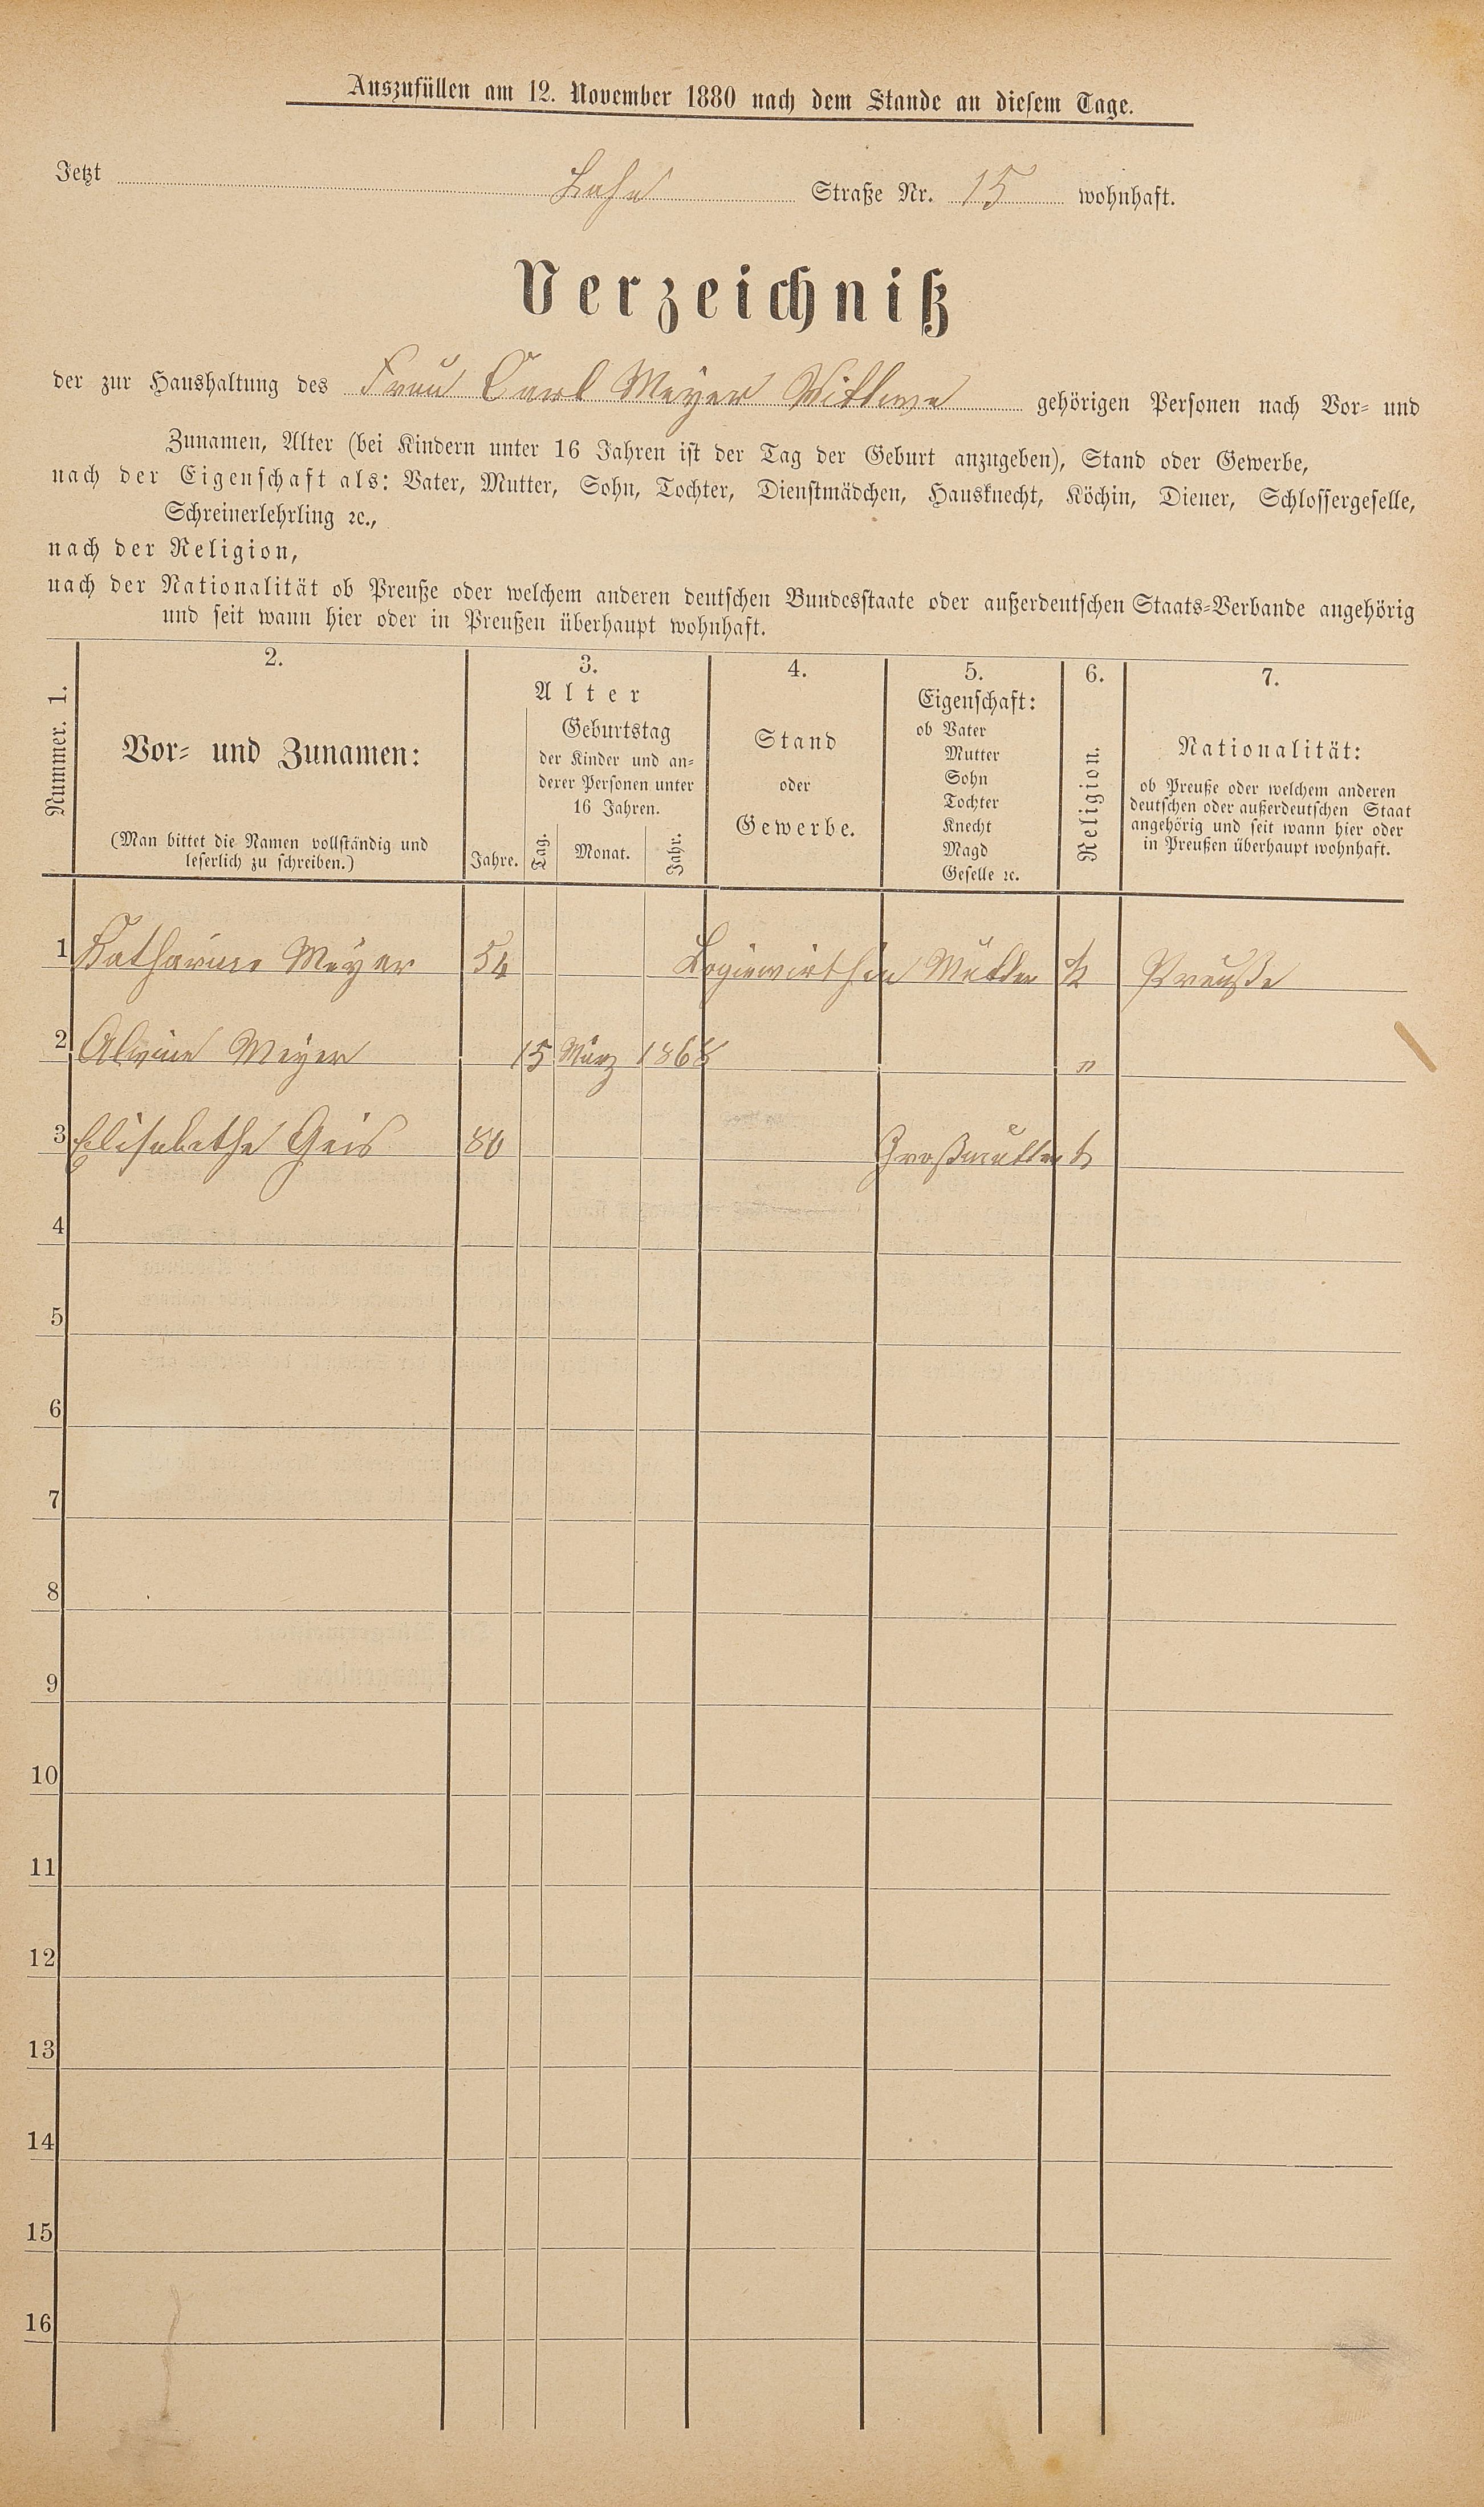 Auszufüllen am 12. November 1880 nach dem Stande an diesem Tage.
Jetzt Lahn Straße Nr. 15 wohnhaft.
Verzeichniß
der zur Haushaltung des Frau Carl Meyer Wittwe gehörigen Personen nach Vor- und
Zunamen, Alter (bei Kindern unter 16 Jahren ist der Tag der Geburt anzugeben), Stand oder Gewerbe,
nach der Eigenschaft als: Vater, Mutter, Sohn, Tochter, Dienstmädchen, Hausknecht, Köchin, Diener, Schlossergeselle,
Schreinerlehrling ꝛc.,
nach der Religion,
nach der Nationalität ob Preuße oder welchem anderen deutschen Bundesstaate oder außerdeutschen Staats-Verbande angehörig
und seit wann hier oder in Preußen überhaupt wohnhaft.
Nummer. 1.
2.
Vor- und Zunamen:
(Man bittet die Namen vollständig und
leserlich zu schreiben.)
3.
Alter
Jahre.
Geburtstag
der Kinder und an-
derer Personen unter
16 Jahren.
Tag. Monat. Jahr.
4.
Stand
oder
Gewerbe.
5.
Eigenschaft:
ob Vater
Mutter
Sohn
Tochter
Knecht
Magd
Geselle ꝛc.
6.
Religion.
7.
Nationalität:
ob Preuße oder welchem anderen
deutschen oder außerdeutschen Staat
angehörig und seit wann hier oder
in Preußen überhaupt wohnhaft.
1 Katharine Meyer 54 Logiewirthin Mutter k Preuße
2 Alwine Meyer 15 März 1868 "
3 Elisabethe Geis 80 Großmutter k
4
5
6
7
8
9
10
11
12
13
14
15
16